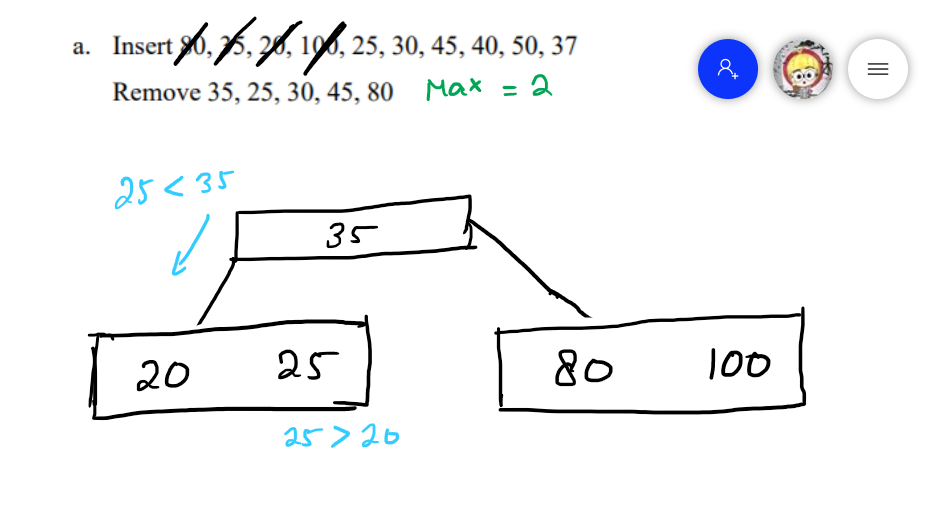 a. Insert 80, 35, 20, 100, 25, 30, 45, 40, 50, 37
Remove 35, 25, 30, 45, 80 Max = 2
25 < 35
35
20 25
80 100
25 > 20